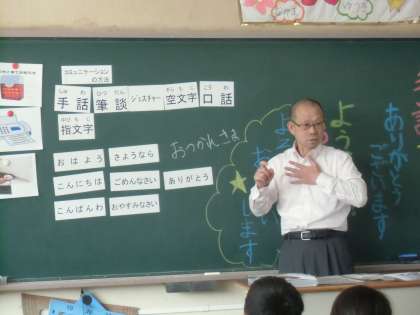 コミュニケーション
の方法
しゅ わ
手話
ひつ だん
筆談
ジェスチャー
から も じ
空文字
こう わ
口話
ゆび も じ
指文字
おはよう
さようなら
こんにちは
ごめんなさい
ありがとう
こんばんわ
おやすみなさい
おつかれさま
ありがとう
ございます
よう
します